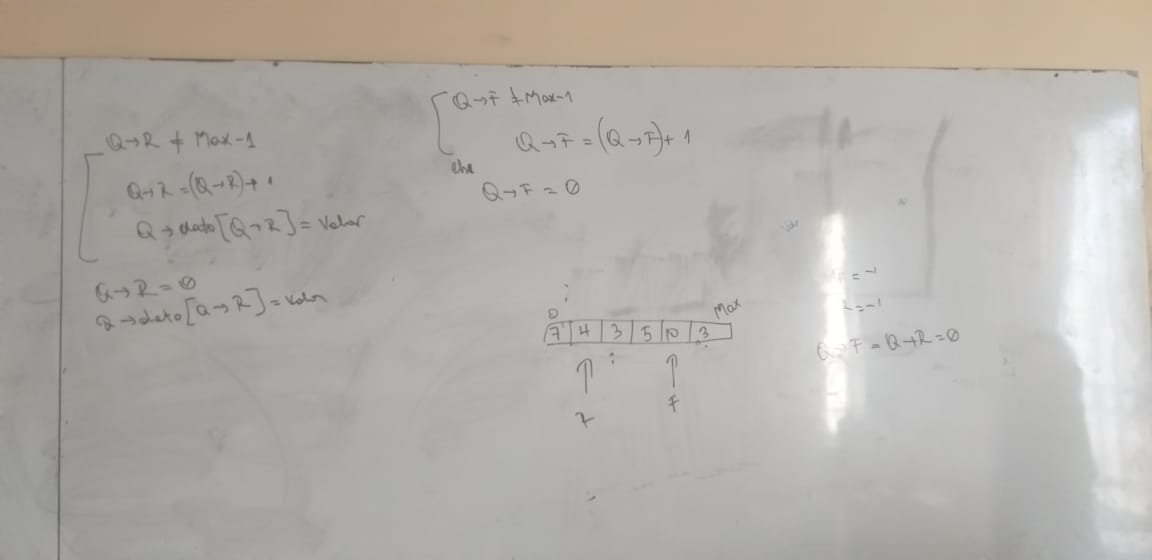 Q→R ≠ Max-1
Q→R = (Q→R)+1
Q→dato[Q→R] = Valor
Q→R = Ø
Q→dato[Q→R] = Valor
Q→F ≠ Max-1
Q→F = (Q→F)+1
else
Q→F = Ø
0 Max
7 4 3 5 10 3
R F
= -1
= -1
Q→F = Q→R = Ø